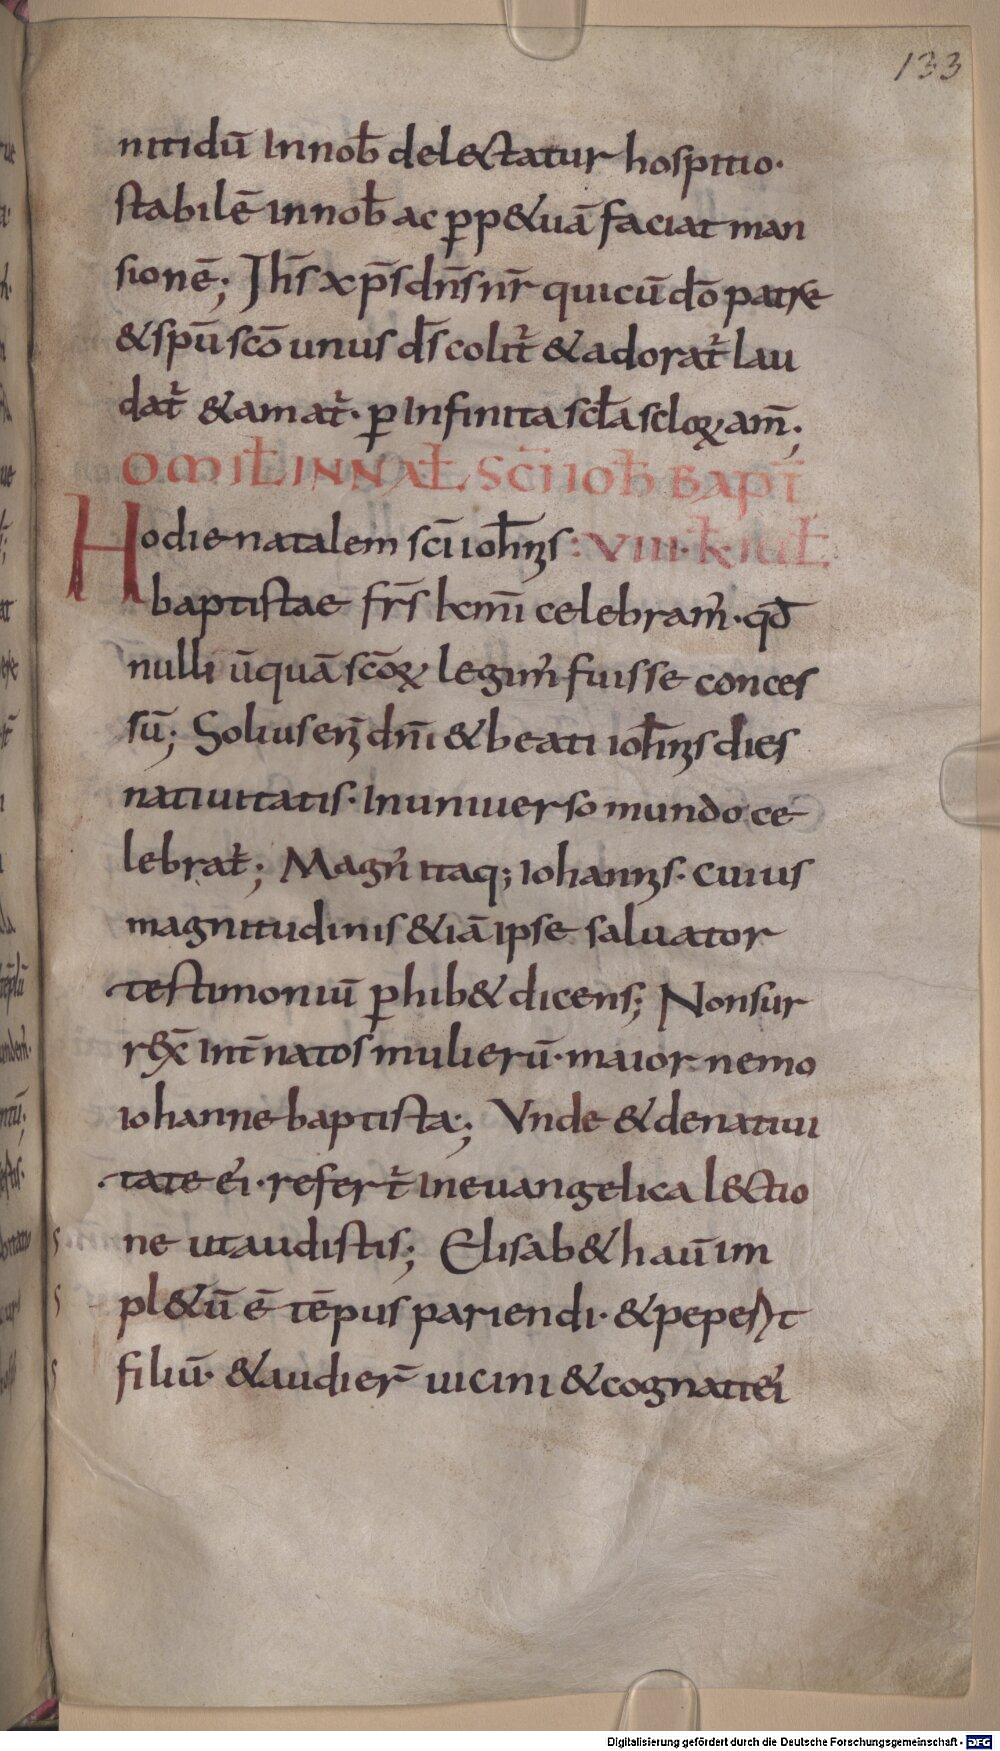 133
nitidū Innob̄ delectatur hospitio·
stabilē innob̄ ac ꝑp&uā faciat man
sionē; Jhs̄ xp̄s dn̄s nr̄ quicū dō patre
&spū scō unus ds̄ colit᷑ &adorat᷑ lau
dat᷑ &amat᷑· ꝑ Infinita scła scloꝝ am̄;
OMIŁ INNAŁ SCI IOH̄ BAPT̄
Hodie natalem sci ioh̄nis : VIII· K̄ IUŁ
baptistae frs̄ kmi celebram᷒· qđ
nulli ūquā scōꝝ legim᷒ fuisse conces
sū; Solius eni dn̄i &beati ioh̄nis dies
natiuitatis· Inuniuerso mundo ce
lebrat᷑; Magn᷒ itaq; iohannis· cuius
magnitudinis &iā ipse saluator
testimoniū ꝑhib& dicens; Nonsur
rex̄ Int̄ natos mulierū· maior nemo
iohanne baptista; Vnde &denatiui
tate ei᷒· refert᷑ Ineuangelica lectio
ne utaudistis; Elisab&h aū im
pl&ū ē tēpus pariendi· &peperit
filiū· &audier̄ uicini &cognatiei᷒
Digitalisierung gefördert durch die Deutsche Forschungsgemeinschaft - DFG